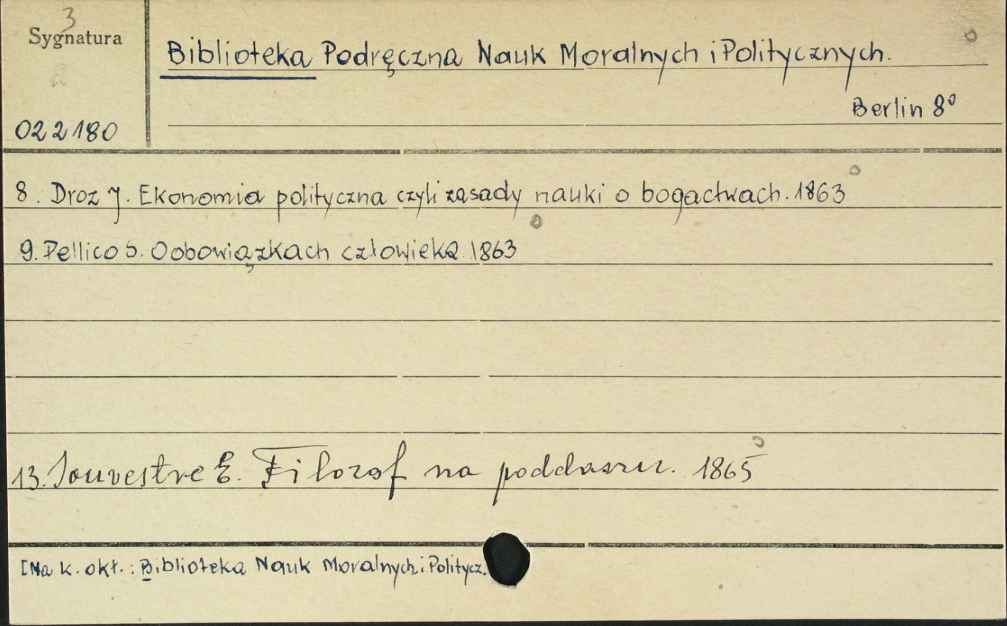 3
Sygnatura
Biblioteka Podręczna Nauk Moralnych i Politycznych.
Berlin 8°
022180
8. Droz J. Ekonomia polityczna czyli zasady nauki o bogactwach. 1863
9. Pellico S. O obowiązkach człowieka 1863
13. Souvestre E. Filozof na poddaszu. 1865
[Na k. okł.: Biblioteka Nauk Moralnych i Politycz.